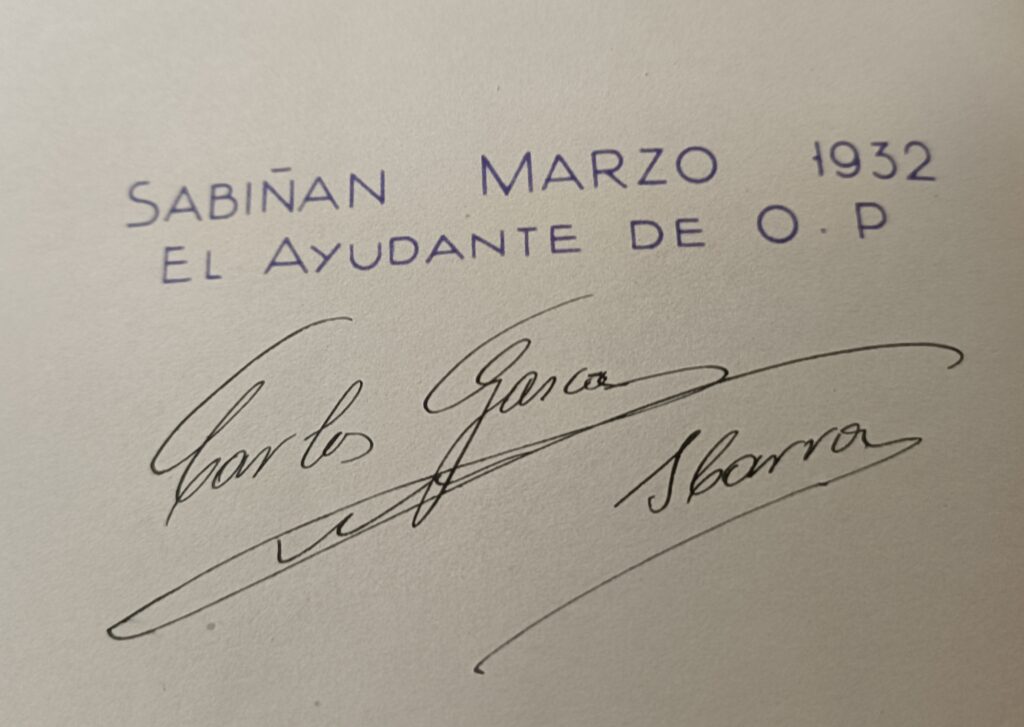 SABIÑAN MARZO 1932
EL AYUDANTE DE O. P
Carlos Gasca
Ibarra